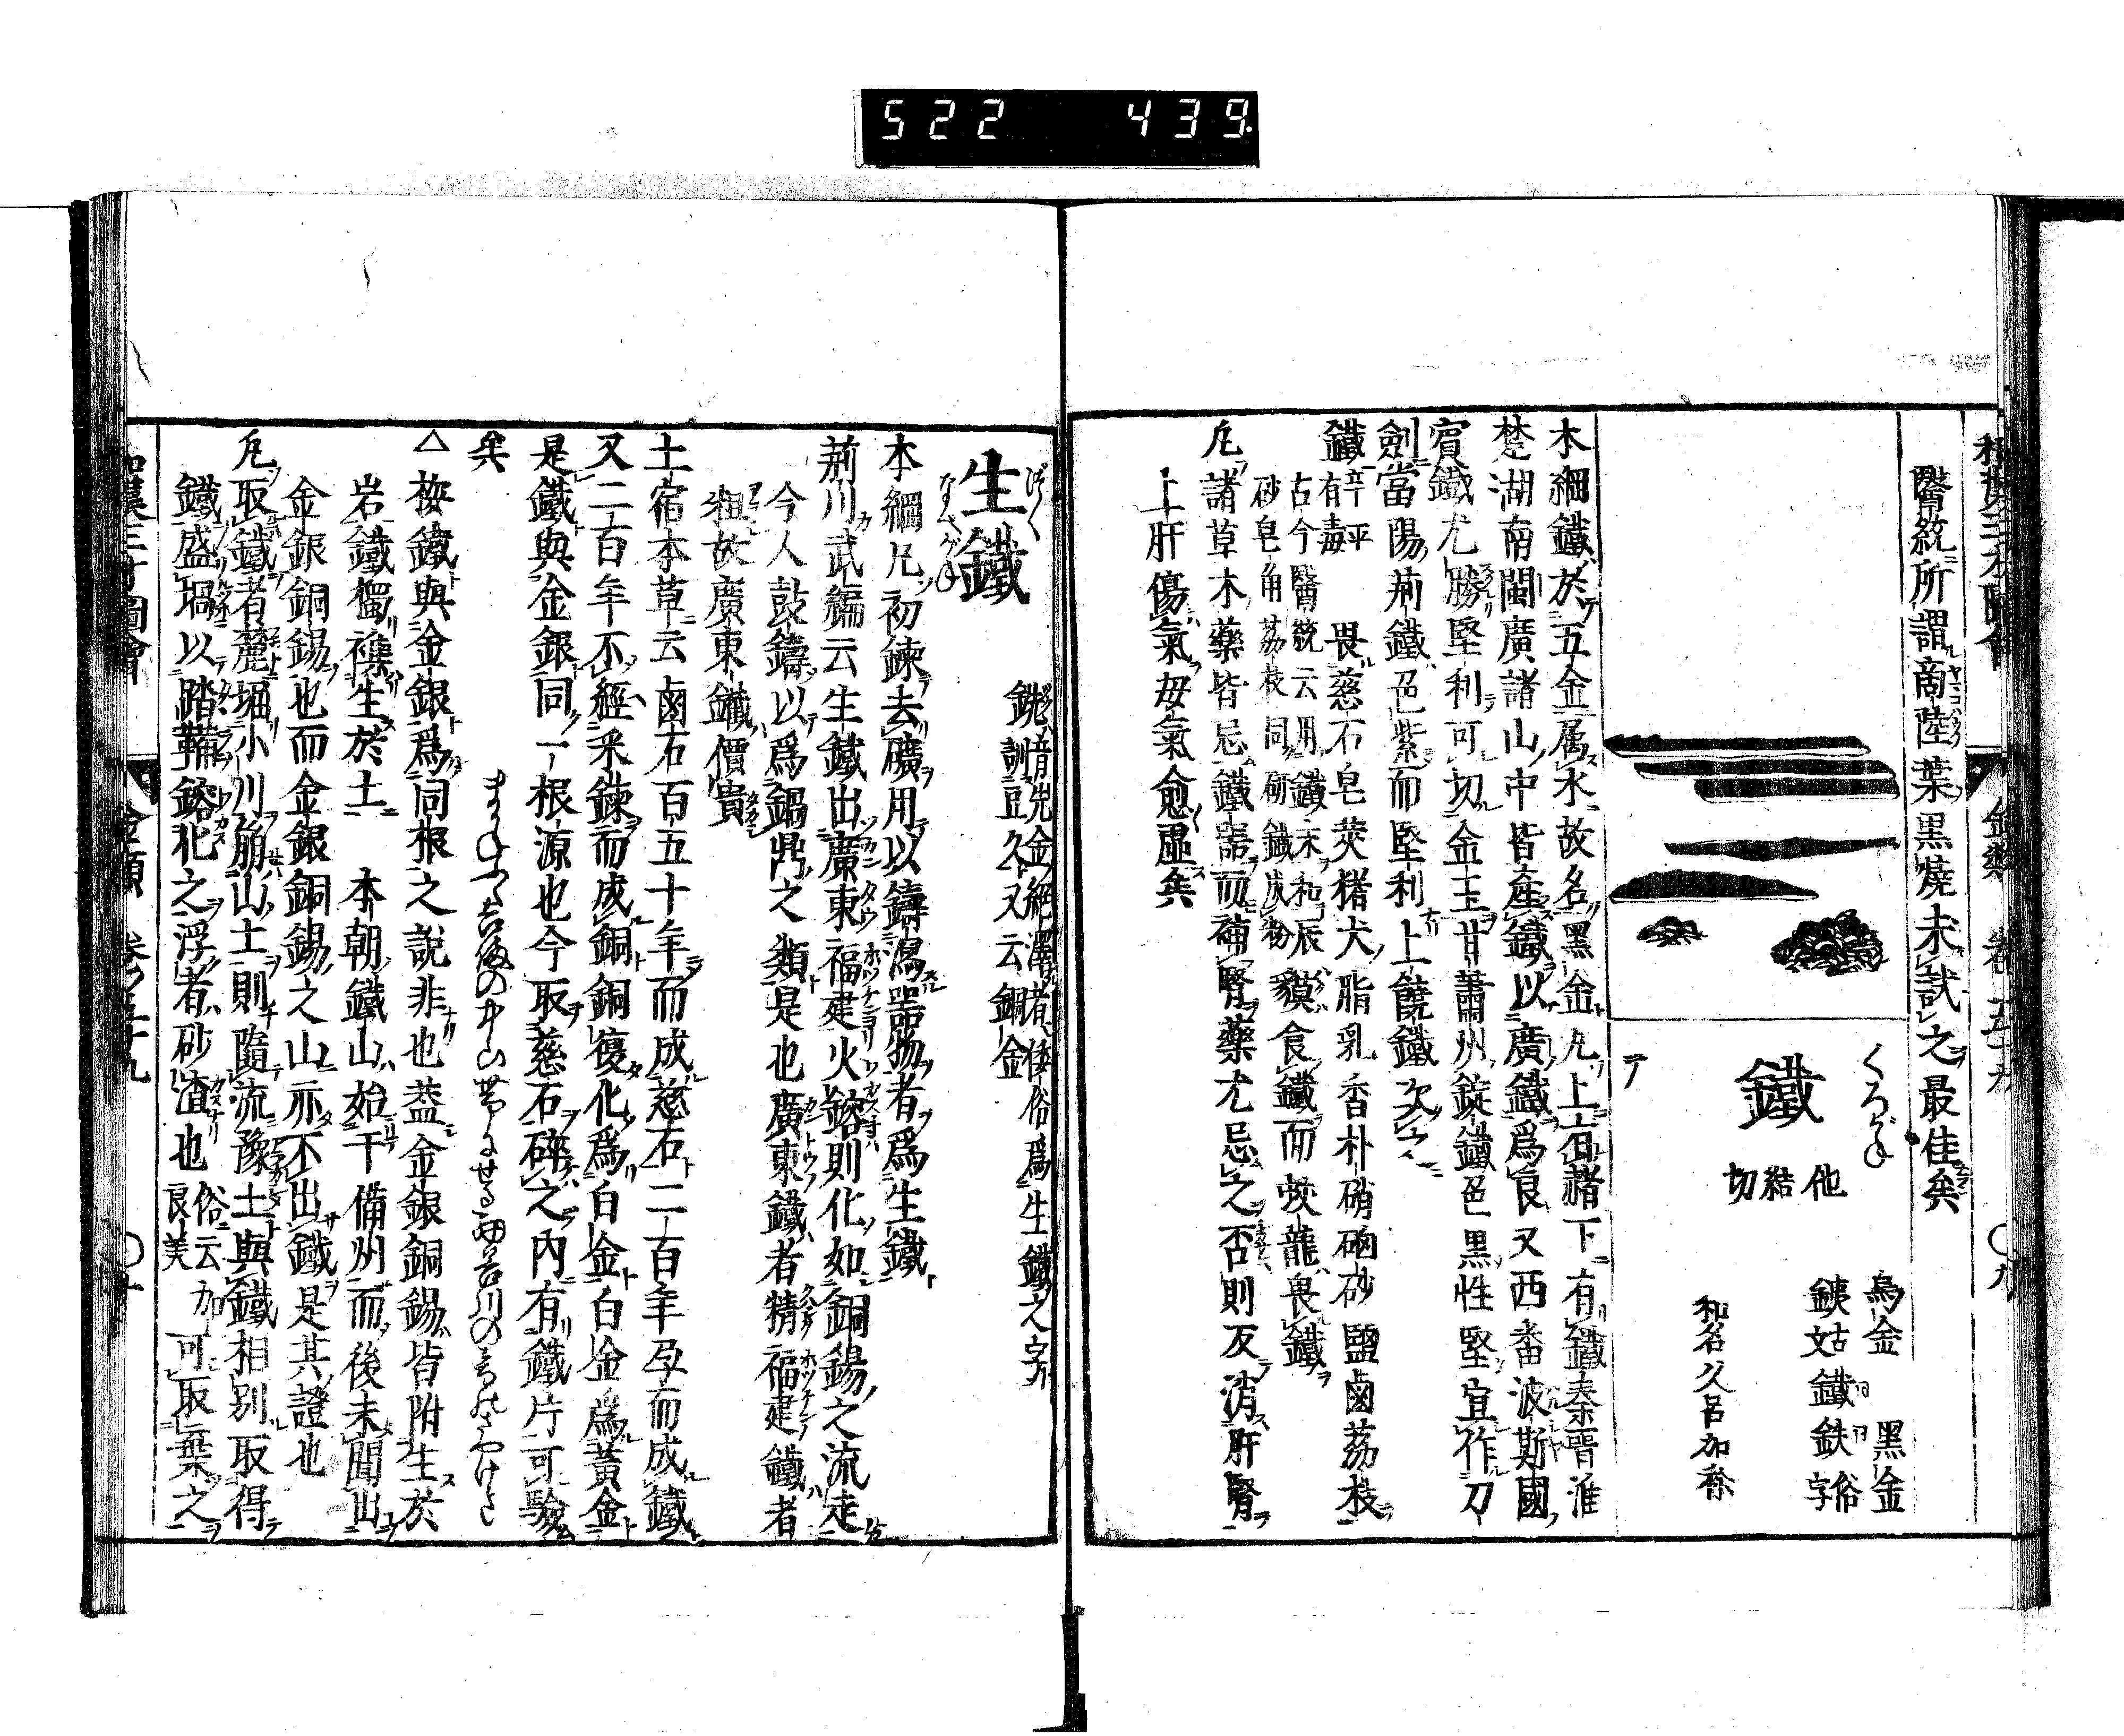 522 439
醫統所謂商陸葉黒燒未試之最佳矣
くろがね
鐵
他結切
烏金 黑金
銕 䥫 鉄 俗字
和名久呂加祢
テ
本綱鐵於五金属水故名黑金凡上有赭下有鐵秦晋淮
楚湖南閩廣諸山中皆産鐵以廣鐵爲良又西番波斯國
賓鐵尤勝堅利可切金玉甘肅州錠鐵色黒性堅宜作刀
劍當陽荊鐵色紫而堅利上饒鐵次之
鐵 辛平有毒 畏慈石皂莢猪犬脂乳香朴硝硇砂鹽鹵荔枝
古今醫統云用鐵末和
砂皂角荔枝同 貘食鐵而蛟龍畏鐵
凡諸草木藥皆忌鐵噐而補腎藥尤忌之否則反消肝腎
上肝傷氣母氣愈虛矣
和漢三才圖會 金類 卷ノ五十九 〇九
生鐵
づく
銑 音先金絕澤者倭俗爲生鐵之字
訓豆久又云銅金
本綱凡初錬去礦用以鑄瀉噐物者爲生鐵
荊川武編云生鐵出廣東福建火鎔則化如銅錫之流走
今人鼓鑄以爲鍋鼎之類是也廣東鐵者精福建鐵者
粗故廣東鐵價貴
土宿本草云鹵石百五十年而成慈石二百年孕而成鐵
又二百年不經采錬而成銅銅復化爲白金白金爲黃金
是鐵與金銀同一根源也今取慈石碎之內有鐵片可驗
矣
まかねふく吉備の中山帯にせる細谷川の音のさやけさ
△按鐵與金銀爲同根之說非也蓋金銀銅錫皆附生於
岩鐵獨襍生於土 本朝鐵山始于備州而後未聞出
金銀銅錫也而金銀銅錫之山亦不出鐵是其證也
凡取鐵者麓堀小川崩山土則隨流豫土與鐵相別取得
鐵盛堝以踏鞴鎔化之浮者砂渣也 俗云加良美 可取棄之
和漢三才圖會 金類 卷ノ五十九 〇十